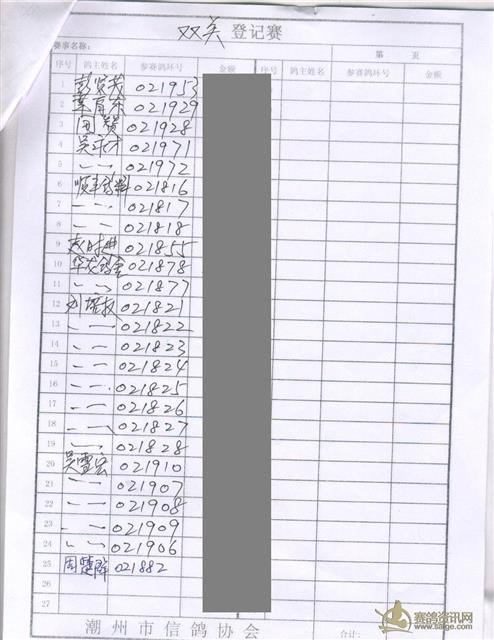 双英 登记赛
赛事名称: 第 页
序号 鸽主姓名 参赛鸽环号 金额 序号 鸽主姓名 参赛鸽环号 金额
1 彭贤茂 021953
2 021929
3 021928
4 021971
5 〃 一 021972
6 顺丰饲料 021816
7 〃 一 021817
8 〃 一 021818
9 021855
10 021878
11 〃 一 021877
12 021821
13 〃 一 021822
14 〃 一 021823
15 〃 一 021824
16 〃 一 021825
17 〃 一 021826
18 〃 一 021827
19 〃 一 021828
20 吴雪宏 021910
21 〃 一 021907
22 〃 一 021908
23 〃 一 021909
24 〃 一 021906
25 周楚群 021882
26
27
潮州市信鸽协会 合计:
赛鸽资讯网
www.saige.com